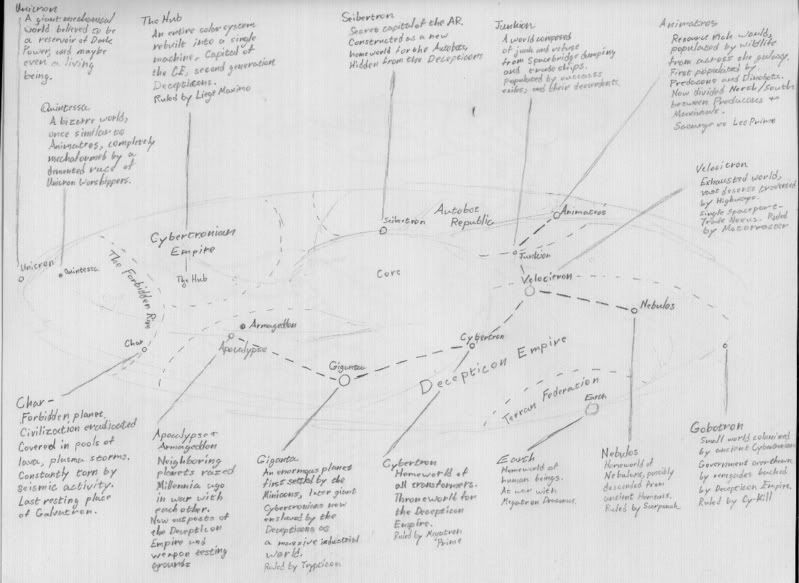 Unicron
A giant mechanical
world believed to be
a reservoir of Dark
Power, and maybe
even a living
being.
The Hub
An entire solar system
rebuilt into a single
machine, Capital of
the CE, second generation
Decepticons.
Ruled by Liege Maximo
Seibertron
Secret capital of the AR.
Constructed as a new
homeworld for the Autobots,
Hidden from the Decepticons
Junkion
A world composed
of junk and refuse
from Spacebridge dumping
and trade ships.
Populated by outcasts
exiles, and their descendents.
Animatros
Resource rich world,
populated by wildlife
from across the galaxy.
First populated by
Predacons and Dinobots.
Now divided North/South
between Predacons +
Maximals.
Scourge vs Leo Prime
Quintessa
A bizarre world,
once similar to
Animatros, completely
mechaformed by a
demented race of
Unicron Worshippers.
Velocitron
Exhausted world,
vast deserts traversed
by Highways.
single Spaceport-
Trade Nexus. Ruled
by Motormaster
Seibertron
Autobot
Republic
Animatros
Cybertronian
Empire
The Forbidden Rim
Unicron
Quintessa
The Hub
Core
Junkion
Velocitron
Nebulos
Armageddon
Apocalypse
Char
Giganta
Cybertron
Decepticon Empire
Terran Federation
Earth
Char-
Forbidden planet,
Civilization eradicated
Covered in pools of
lava, plasma storms.
Constantly torn by
seismic activity.
Last resting place
of Galvatron.
Apocalypse+
Armageddon
Neighboring
planets razed
Millennia ago
in war with
each other.
Now outposts of
the Decepticon
Empire and
weapon testing
grounds
Giganta
An enormous planet
first settled by the
Minicons, later giant
Cybertronians now
enslaved by the
Decepticons as
a massive industrial
world.
Ruled by Trypticon
Cybertron
Homeworld of
all transformers.
Throneworld for
the Decepticon
Empire.
Ruled by Megatron
Prime
Earth
Homeworld of
human beings.
At war with
Megatron Dreamus.
Nebulos
Homeworld of
Nebulans, possibly
descended from
ancient Humans.
Ruled by Scorponok
Gobotron
Small world colonized
by ancient Cybertronians
Government overthrown
by renegades backed
by Decepticon Empire.
Ruled by Cy-Kill